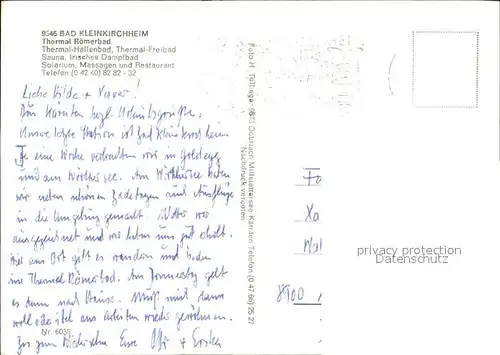 9546 BAD KLEINKIRCHHEIM
Thermal Römerbad
Thermal-Hallenbad, Thermal-Freibad
Sauna, Irisches Dampfbad
Solarium, Massagen und Restaurant
Telefon (0 42 40) 82 82 - 32
Liebe Hilde + Xaver!
Aus Kärnten herzl. Urlaubsgrüße.
Unsere letzte Station ist Bad Kleinkirchheim
Je eine Woche verbrachten wir in Goldegg
und am Wörthersee. Am Wörthersee haben
wir neben schönen Badetagen auch Ausflüge
in die Umgebung gemacht. Wetter war
ausgezeichnet und wir haben uns gut erholt.
Hier am Ort geht es wandern und baden
im Thermal Römerbad. Am Donnerstag geht
es dann nach Hause. Muß mich dann
wohl oder übel ans arbeiten wieder gewöhnen.
Nr. 6035
Bis zum Wiedersehn Eure
Foto H. Tollinger 9873 Döbriach Millstättersee Kärnten Telefon (0 47 66) 25 27
Nachdruck verboten
Fa
Xa
Wal
8900
privacy protection
Datenschutz